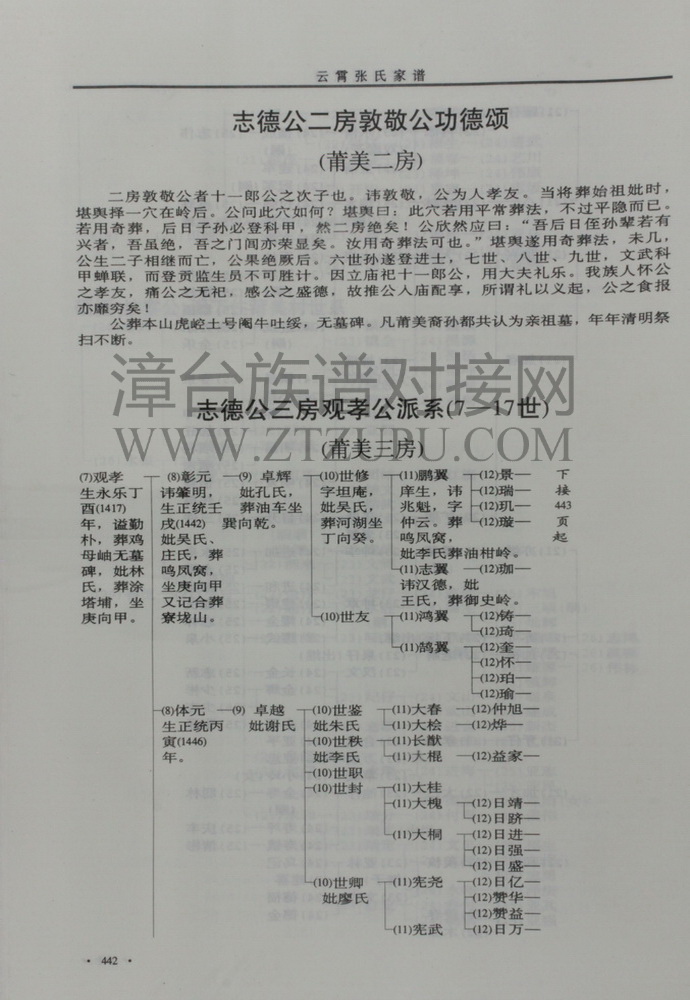 云霄张氏家谱
志德公二房敦敬公功德颂
(莆美二房)
二房敦敬公者十一郎公之次子也。讳敦敬，公为人孝友。当将葬始祖妣时，
堪舆择一穴在岭后。公问此穴如何？堪舆曰：此穴若用平常葬法，不过平隐而已。
若用奇葬，后日子孙必登科甲，然二房绝矣！公欣然应曰：“吾后日侄孙辈若有
兴者，吾虽绝，吾之门闾亦荣显矣。汝用奇葬法可也。”堪舆遂用奇葬法，未几，
公生二子相继而亡，公果绝厥后。六世孙遂登进士，七世、八世、九世，文武科
甲蝉联，而登贡监生员不可胜计。因立庙祀十一郎公，用大夫礼乐。我族人怀公
之孝友，痛公之无祀，感公之盛德，故推公入庙配享，所谓礼以义起，公之食报
亦靡穷矣！
公葬本山虎崆土号阉牛吐绥，无墓碑。凡莆美裔孙都共认为亲祖墓，年年清明祭
扫不断。
漳台族谱对接网
WWW.ZTZUPU.COM
志德公三房观孝公派系(7—17世)
(莆美三房)
(7)观孝 (8)彰元 (9) 卓辉 (10)世修 (11)鹏翼 (12)景 下
生永乐丁 讳肇明， 妣孔氏， 字坦庵， 庠生，讳 (12)瑞 接
酉(1417) 生正统壬 葬油车坐 妣吴氏， 兆魁，字 (12)玑 443
年，谥勤 戌(1442) 巽向乾。 葬河湖坐 仲云。葬 (12)璇 页
朴，葬鸡 妣吴氏、 丁向癸。 鸣凤窝， 起
母岫无墓 庄氏，葬 妣李氏葬油柑岭。
碑，妣林 鸣凤窝， (11)志翼 (12)珈
氏，葬涂 坐庚向甲 讳汉德，妣
塔埔，坐 又记合葬 王氏，葬御史岭。
庚向甲。 寮垅山。 (10)世友 (11)鸿翼 (12)铸
(12)琦
(11)鹄翼 (12)奎
(12)怀
(12)珀
(12)瑜
(8)体元 (9) 卓越 (10)世鉴 (11)大春 (12)仲旭
生正统丙 妣谢氏 妣朱氏 (11)大桧 (12)烨
寅(1446) (10)世秩 (11)长猷
年。 妣李氏 (11)大棍 (12)益家
(10)世职
(10)世封 (11)大桂
(11)大槐 (12)日靖
(12)日跻
(11)大桐 (12)日进
(12)日强
(12)日盛
(10)世卿 (11)宪尧 (12)日亿
妣廖氏 (12)赞华
(12)赞益
(11)宪武 (12)日万
· 442 ·